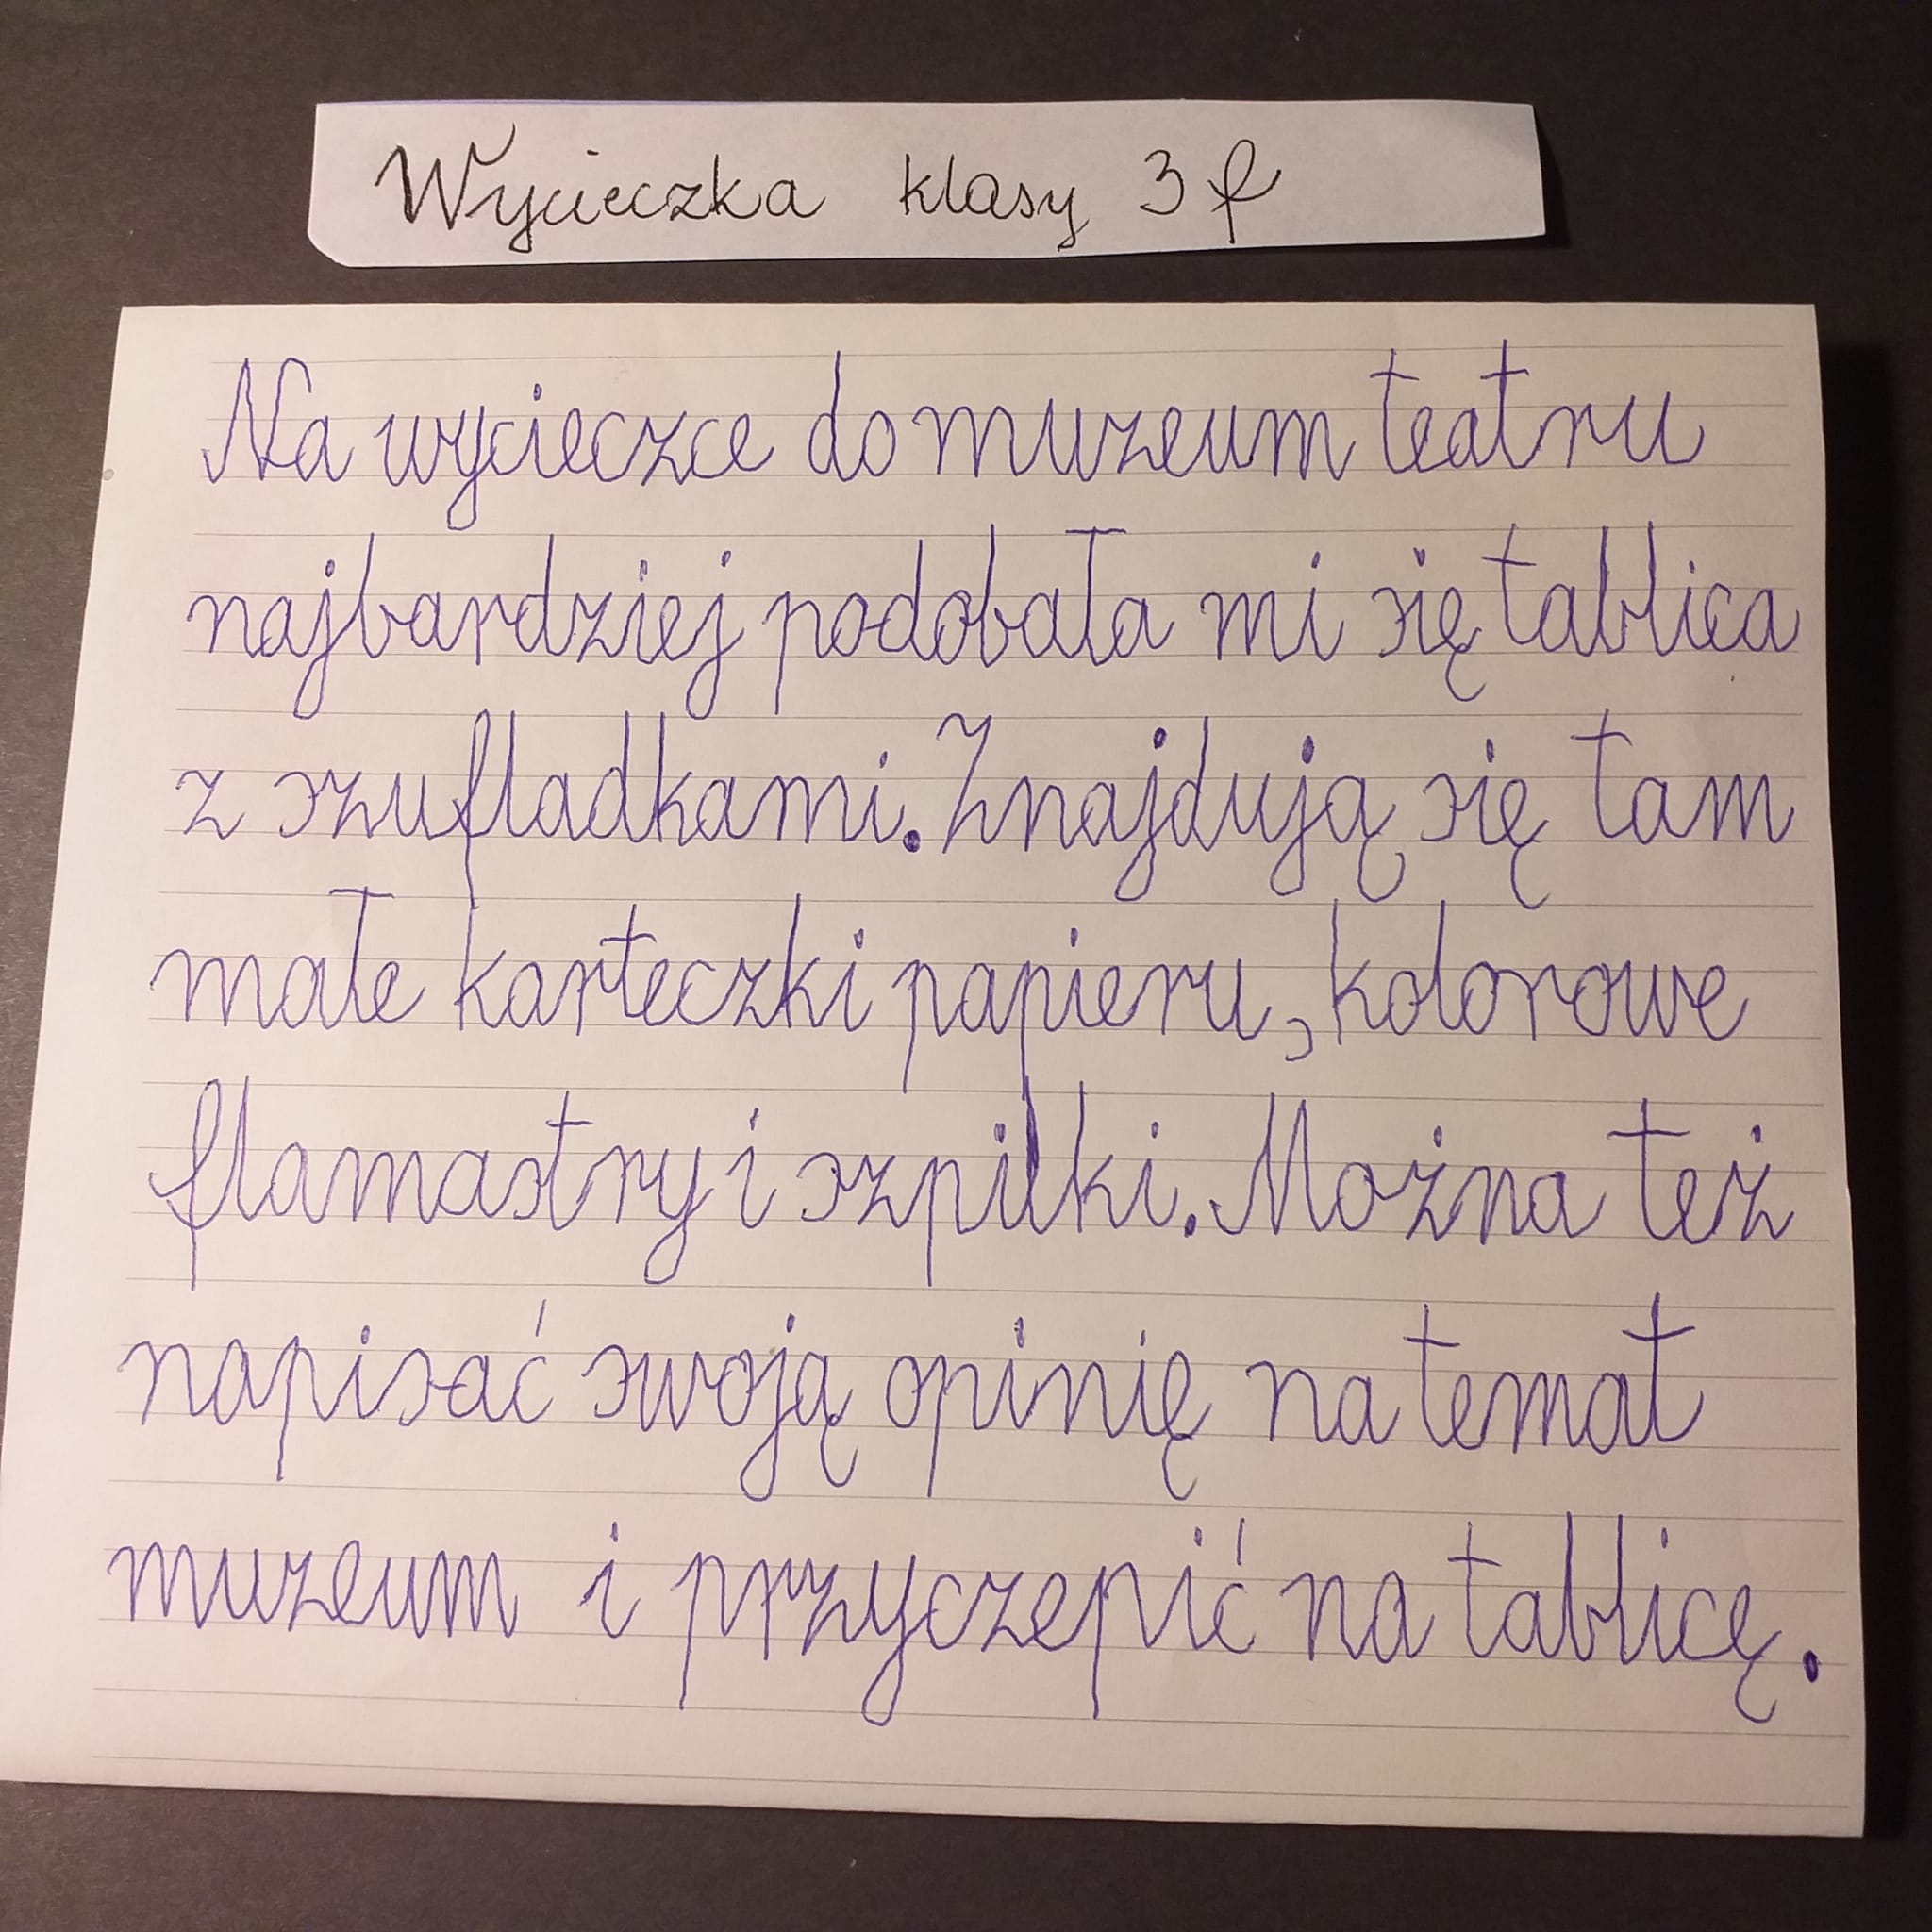 Wycieczka klasy 3 f
Na wycieczce do muzeum teatru
najbardziej podobała mi się tablica
z szufladkami. Znajdują się tam
małe karteczki papieru, kolorowe
flamastry i szpilki. Można też
napisać swoją opinię na temat
muzeum i przyczepić na tablicę.